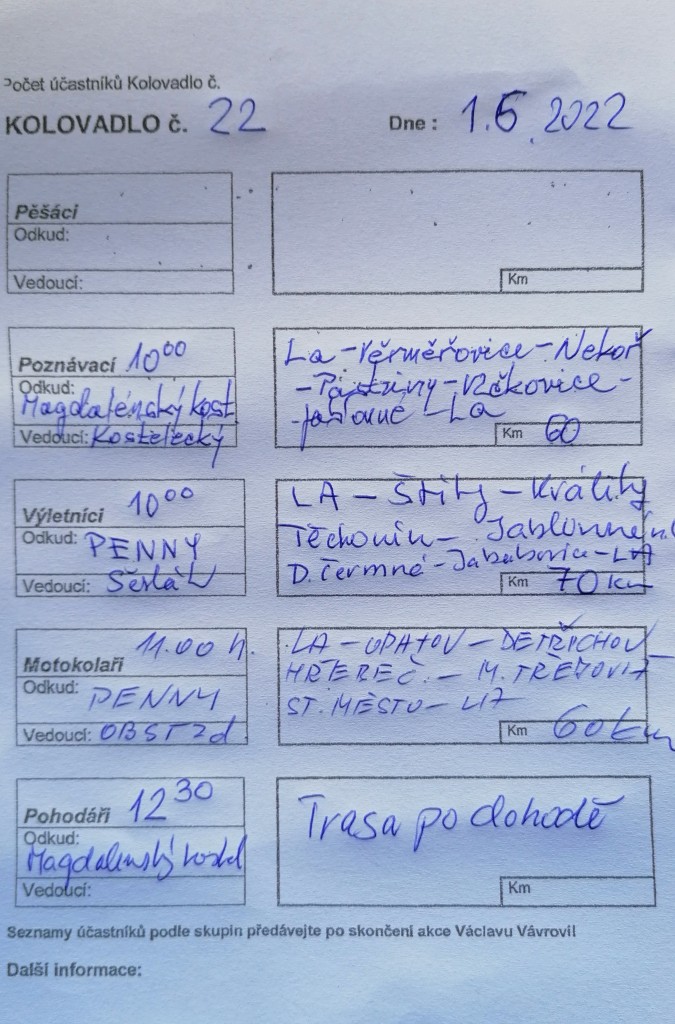 Počet účastníků Kolovadlo č.
KOLOVADLO č. 22 Dne : 1.6.2022
Pěšáci
Odkud:
Vedoucí:
Km
Poznávací 10⁰⁰
Odkud:
Magdalénský kost.
Vedoucí: Kostelecký
La - Věrměřovice - Nekoř
- Pastviny - Vlčkovice -
- Jablonné - La
Km 60
Výletníci 10⁰⁰
Odkud: PENNY
Vedoucí:
LA - Štíty - Králíky
Těchonín - Jablonné n.
D. Čermné - Jakubovice - LA
Km 70 km
Motokolaři 11.00 h.
Odkud: PENNY
Vedoucí:
LA - OPATOV - DETŘICHOV -
HŘEBEČ. - M. TŘEBOVÁ
ST. MĚSTO - LA
Km 60 km
Pohodáři 12³⁰
Odkud:
Magdalenský kostel
Vedoucí:
Trasa po dohodě
Km
Seznamy účastníků podle skupin předávejte po skončení akce Václavu Vávrovi!
Další informace: